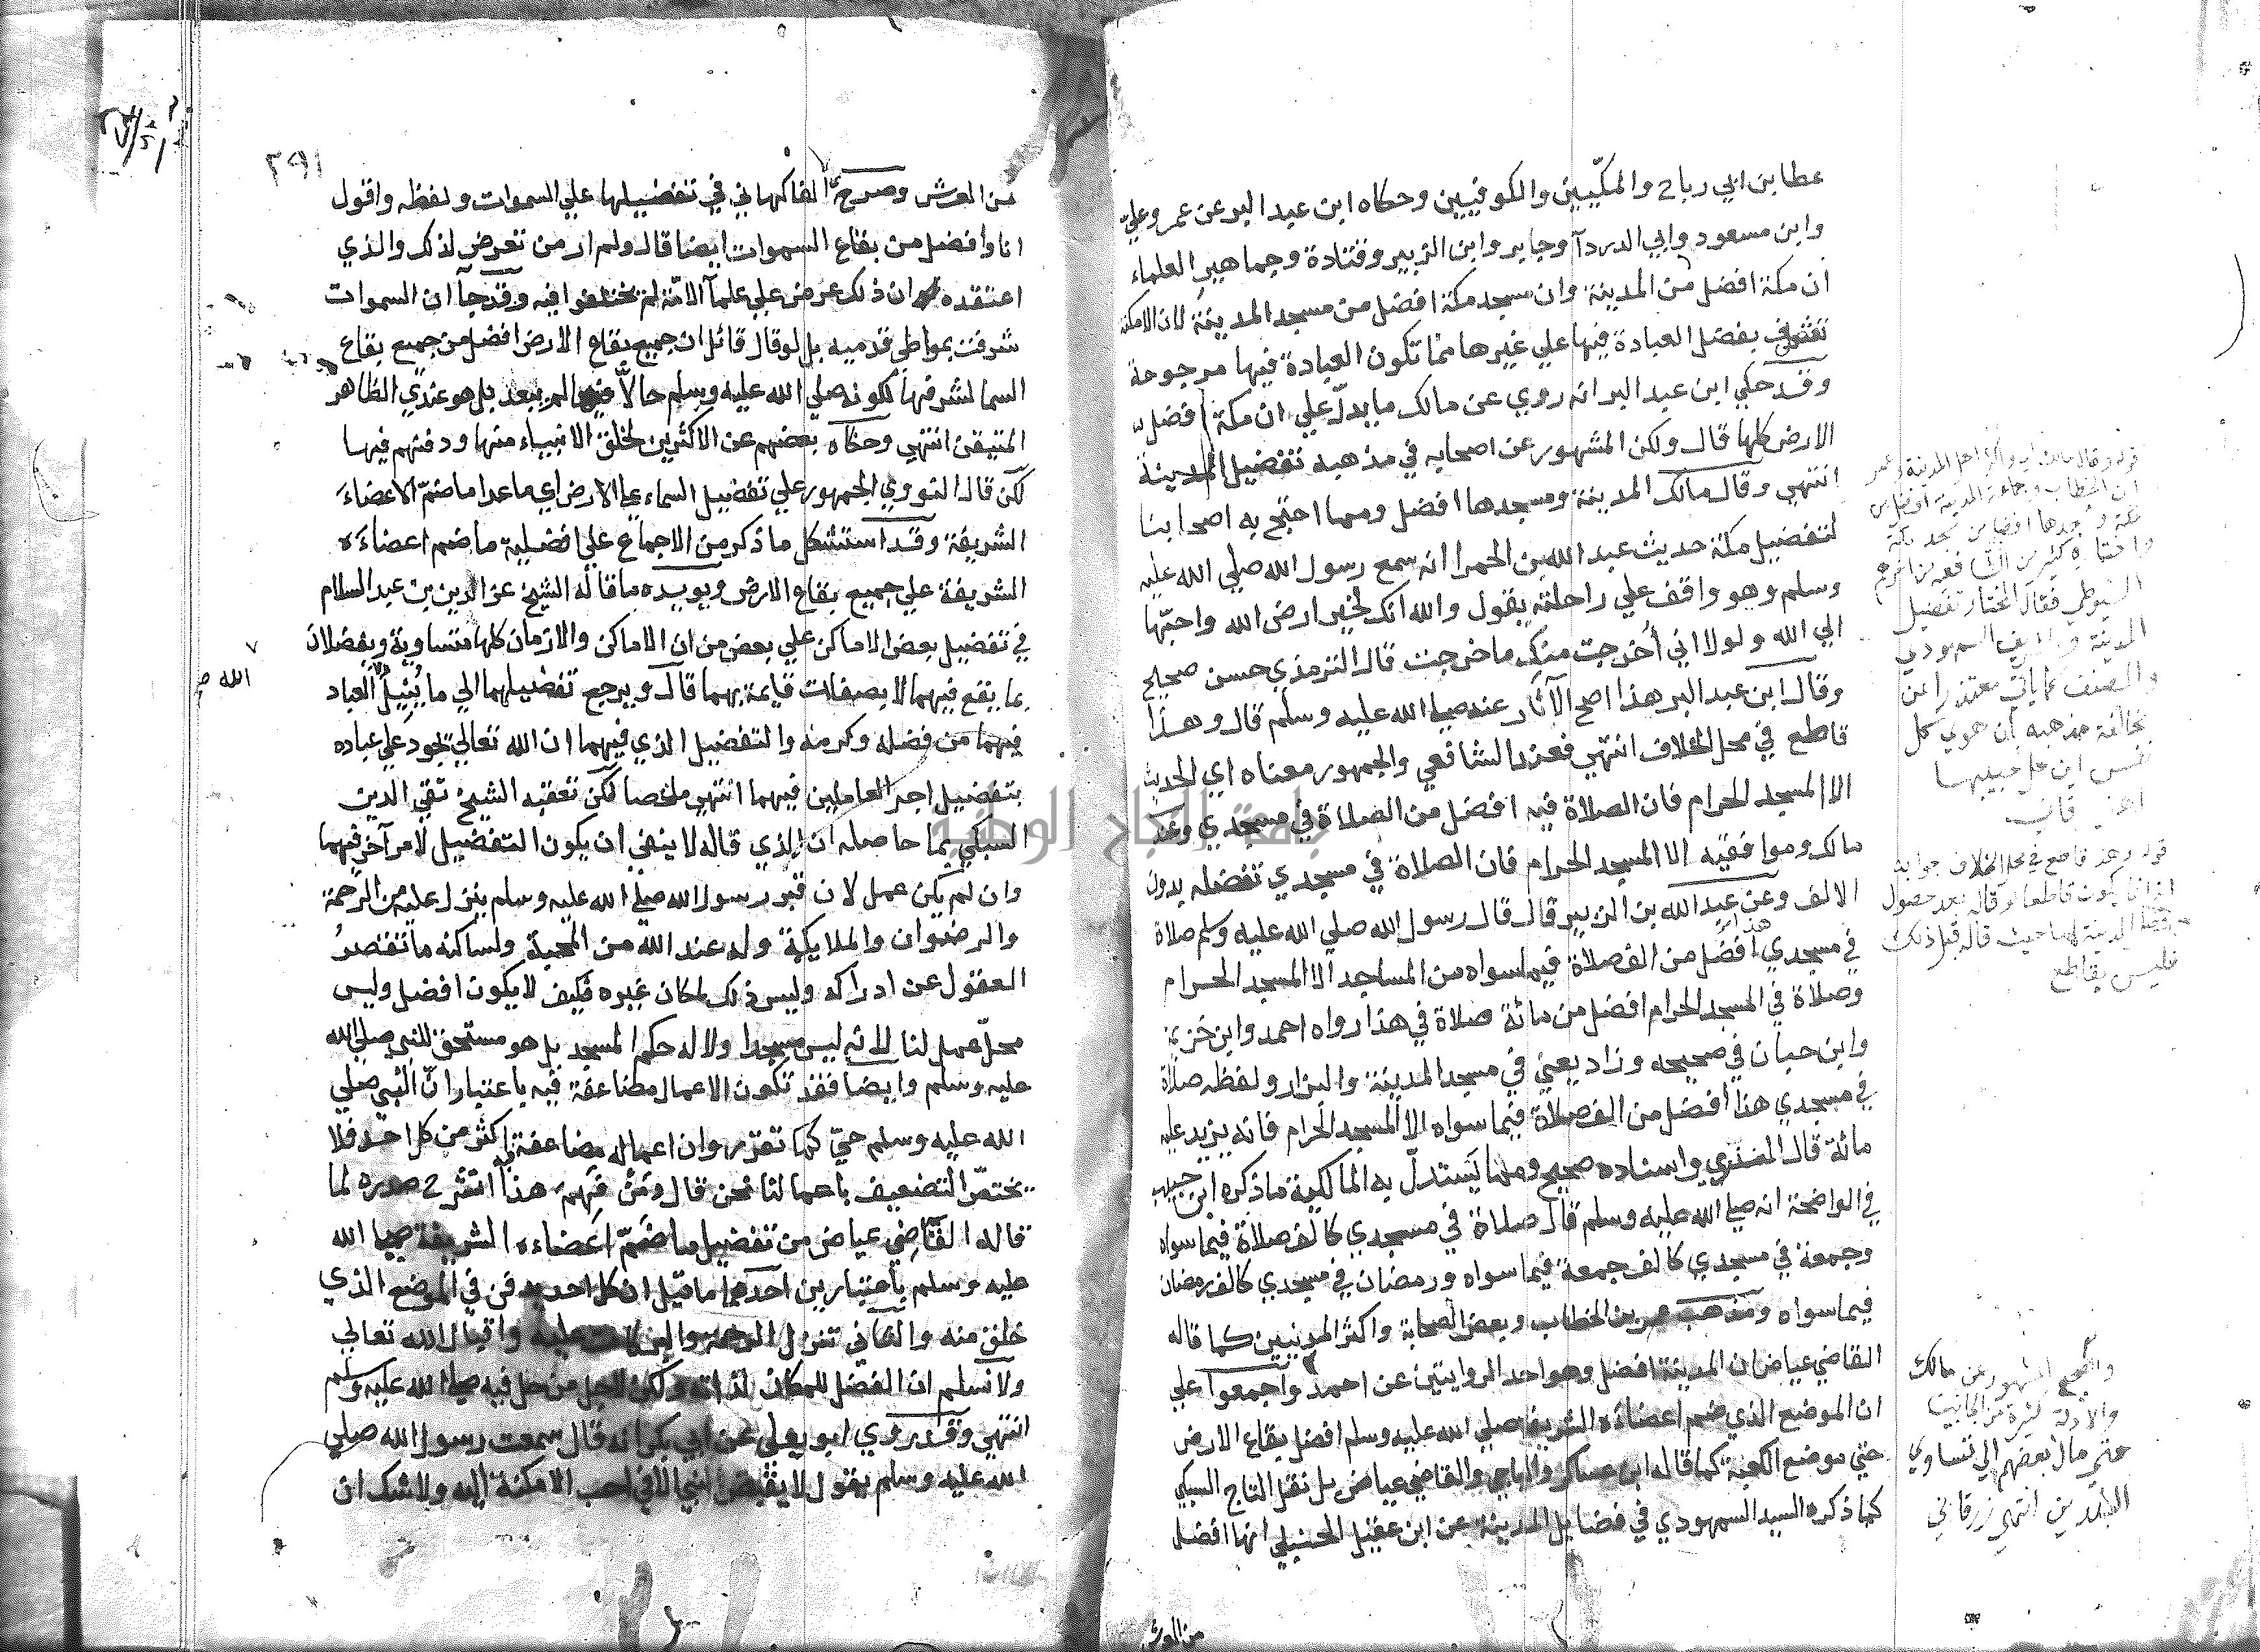 عطا بن ابي رباح والمكّيين والكوفيين وحكاه ابن عبد البر عن عمر وعليّ
وابن مسعود وابي الدردآ وجابر وابن الزبير وقتادة وجماهير العلماء
ان مكة افضل من المدينة وان مسجد مكة افضل من مسجد المدينة لان الامكنة
تشرف بفضل العبادة فيها علي غيرها مما تكون العبادة فيها مرجوحة
وقد حكي ابن عبد البر انه روي عن مالك ما يدلّ علي ان مكة افضل
الارض كلها قال ولكن المشهور عن اصحابه في مذهبه تفضيل المدينة
انتهي وقال مالك المدينة ومسجدها افضل ومما احتج به اصحابنا
لتفضيل مكة حديث عبد الله بن الحمرا انه سمع رسول الله صلي الله عليه
وسلم وهو واقف علي راحلته يقول والله انك لخير ارض الله واحبّها
الي الله ولولا اني أُخرجت منك ما خرجت قال الترمذي حسن صحيح
وقال ابن عبد البر هذا اصح الآثار عنه صلي الله عليه وسلم قال وهذا
قاطع في محل الخلاف انتهي فعند الشافعي والجمهور معناه اي الحديث
الا المسجد الحرام فان الصلاة فيه افضل من الصلاة في مسجدي وعند
مالك وموافقيه الا المسجد الحرام فان الصلاة في مسجدي تفضله بدون
الالف وعن عبد الله بن الزبير قال قال رسول الله صلي الله عليه وسلم صلاة
في مسجدي هذا افضل من الف صلاة فيما سواه من المساجد الا المسجد الحرام
وصلاة في المسجد الحرام افضل من مائة صلاة في هذا رواه احمد وابن خزيمة
وابن حبان في صحيحه وزاد يعني في مسجد المدينة والبزار ولفظه صلاة
في مسجدي هذا افضل من الف صلاة فيما سواه الا المسجد الحرام فانه يزيد عليه
مائة قال المنذري واسناده صحيح ومما يستدلّ به المالكية ما ذكره ابن حبيب
في الواضحة انه صلي الله عليه وسلم قال صلاة في مسجدي كالف صلاة فيما سواه
وجمعة في مسجدي كالف جمعة فيما سواه ورمضان في مسجدي كالف رمضان
فيما سواه ومذهب عمر بن الخطاب وبعض الصحابة واكثر المدنيين كما قاله
القاضي عياض ان المدينة افضل وهو احد الروايتين عن احمد واجمعوا علي
ان الموضع الذي ضم اعضاءه الشريفة صلي الله عليه وسلم افضل بقاع الارض
حتي موضع الكعبة كما قاله ابن عساكر والباجي والقاضي عياض بل نقل التاج السبكي
كما ذكره السيد السمهودي في فضايل المدينة عن ابن عقيل الحنبلي انها افضل
من العرش
قوله وقال مالك اهل المدينة وعمر
ابن الخطاب وجماعة المدينة افضل من
مكة ومسجدها افضل من مسجد مكة
واختاره كثير من الشافعية من اخرهم
السيوطي فقال المختار تفضيل
المدينة والشريف السمهودي
والمصنف كما ياتي معتذرا عن
مخالفة مذهبه بان هوي كل
نفس اين حل حبيبها
قوله وهذا قاطع في محل الخلاف جوابه
انه انما يكون قاطعا لو قاله بعد حصول
فضل المدينة اما حيث قاله قبل ذلك
فليس بقاطع
والصحيح المشهور عن مالك
والادلة كثيرة من الجانبين
حتي مال بعضهم الي تساوي
البلدين انتهي زرقاني
٢٩١
من العرش وصرح الفاكهاني في تفضيلها علي السموات ولفظه واقول
انا وافضل من بقاع السموات ايضا قال ولم ار من تعرض لذلك والذي
اعتقده ان ذلك لو عرض علي علمآ الامّة لم يختلفوا فيه وقد جآ ان السموات
شرفت بمواطئ قدميه بل لو قال قائل ان جميع بقاع الارض افضل من جميع بقاع
السما لشرفها لكونه صلي الله عليه وسلم حالاّ فيها لم يبعد بل هو عندي الظاهر
المتيقن انتهي وحكاه بعضهم عن الاكثرين لخلق الانبياء منها ودفنهم فيها
لكن قال النووي الجمهور علي تفضيل السماء علي الارض اي ما عدا ما ضمّ الاعضاء
الشريفة وقد استشكل ما ذكر من الاجماع علي افضلية ما ضم اعضاءه
الشريفة علي جميع بقاع الارض ويويده ما قاله الشيخ عز الدين بن عبد السلام
في تفضيل بعض الاماكن علي بعض من ان الاماكن والازمان كلها متساوية ويفضلان
بما يقع فيهما لا بصفات قايمة بهما قال ويرجع تفضيلهما الي ما يُنيل العباد
الله صح
فيهما من فضله وكرمه والتفضيل الذي فيهما ان الله تعالي يجود علي عباده
بتفضيل اجر العاملين فيهما انتهي ملخصا لكن تعقبه الشيخ تقي الدين
السبكي بما حاصله ان الذي قاله لا ينفي ان يكون التفضيل لامر آخر فيهما
وان لم يكن عمل لان قبر رسول الله صلي الله عليه وسلم ينزل عليه من الرحمة
والرضوان والملايكة وله عند الله من المحبة ولساكنه ما تقصرُ
العقول عن ادراكه وليس ذلك لمكان غيره فكيف لا يكون افضل وليس
محلّ عمل لنا لانه ليس مسجدا ولا له حكم المسجد بل هو مستحق للنبي صلي الله
عليه وسلم وايضا فقد تكون الاعمال مضاعفة فيه باعتبار انّ النبي صلي
الله عليه وسلم حيّ كما تقرر وان اعماله مضاعفة اكثر من كل احد فلا
يختصّ التضعيف باعمالنا نحن قال ومن فهم هذا انشرح صدره لما
قاله القاضي عياض من تفضيل ما ضمّ اعضاءه الشريفة صلي الله
عليه وسلم باعتبارين احدهما ما قيل ان كل احد يدفن في الموضع الذي
خلق منه والثاني تنزل الرحمة والبركات عليه واقبال الله تعالي
ولا نسلم ان الفضل للمكان لذاته ولكن لاجل من حل فيه صلي الله عليه وسلم
انتهي وقد روي ابو يعلي عن ابي بكر انه قال سمعت رسول الله صلي
الله عليه وسلم يقول لا يقبض النبي الا في احب الامكنة اليه ولا شك ان
جامعة النجاح الوطنية